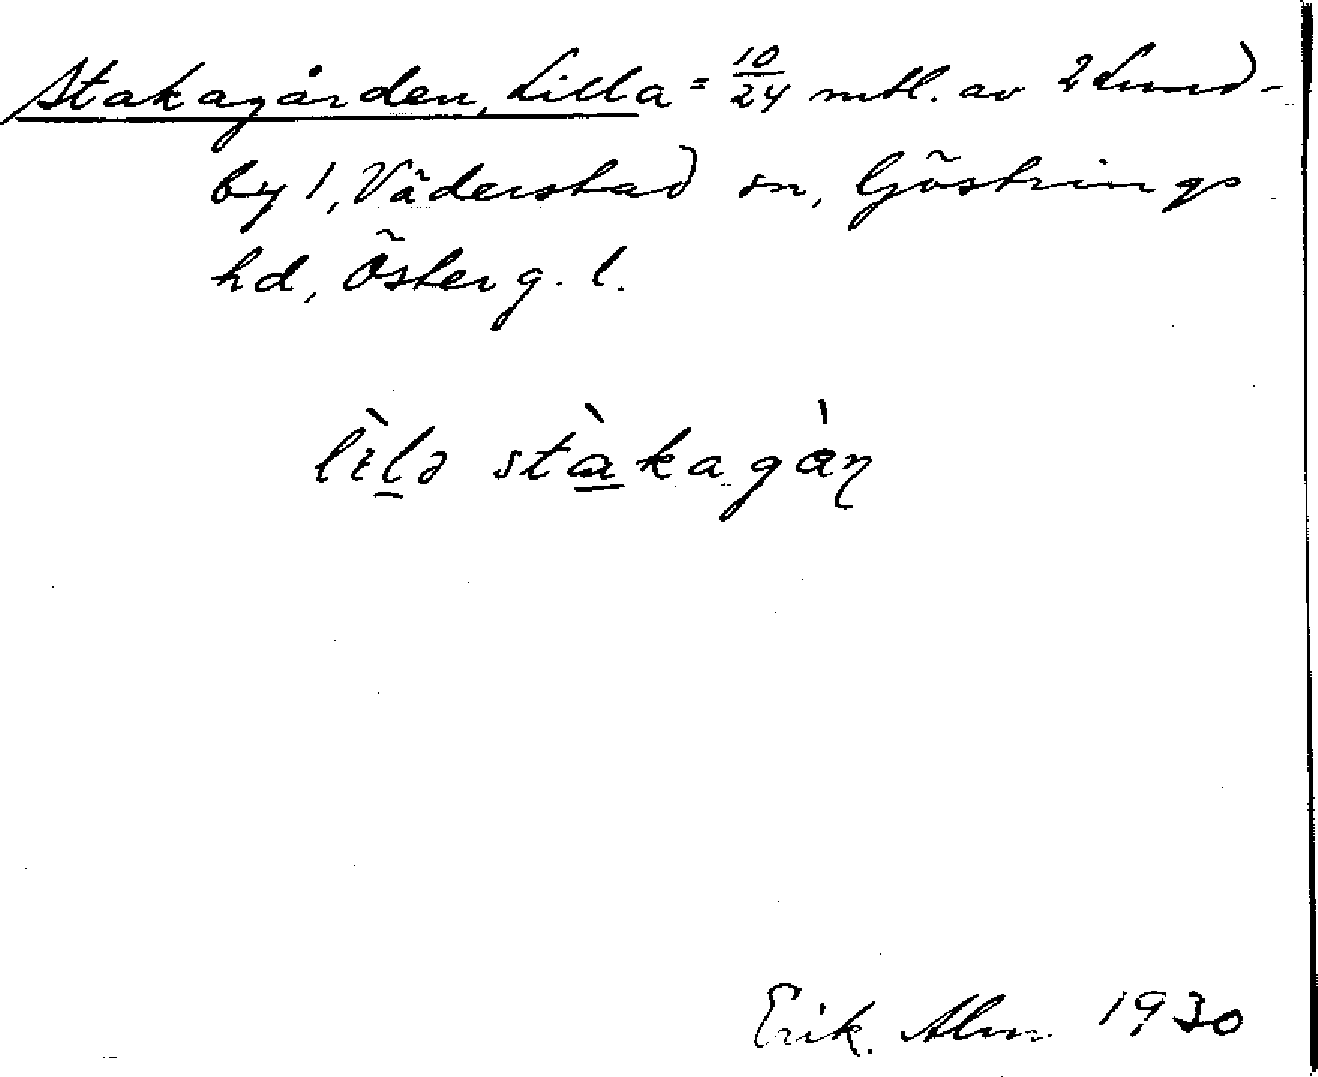 Stakagården, Lilla = 10/24 mtl. av 2 Lund-
by 1, Väderstad sn, Göstrings
hd, Österg. l.
lìlə stàkagàɳ
Erik Alm 1930